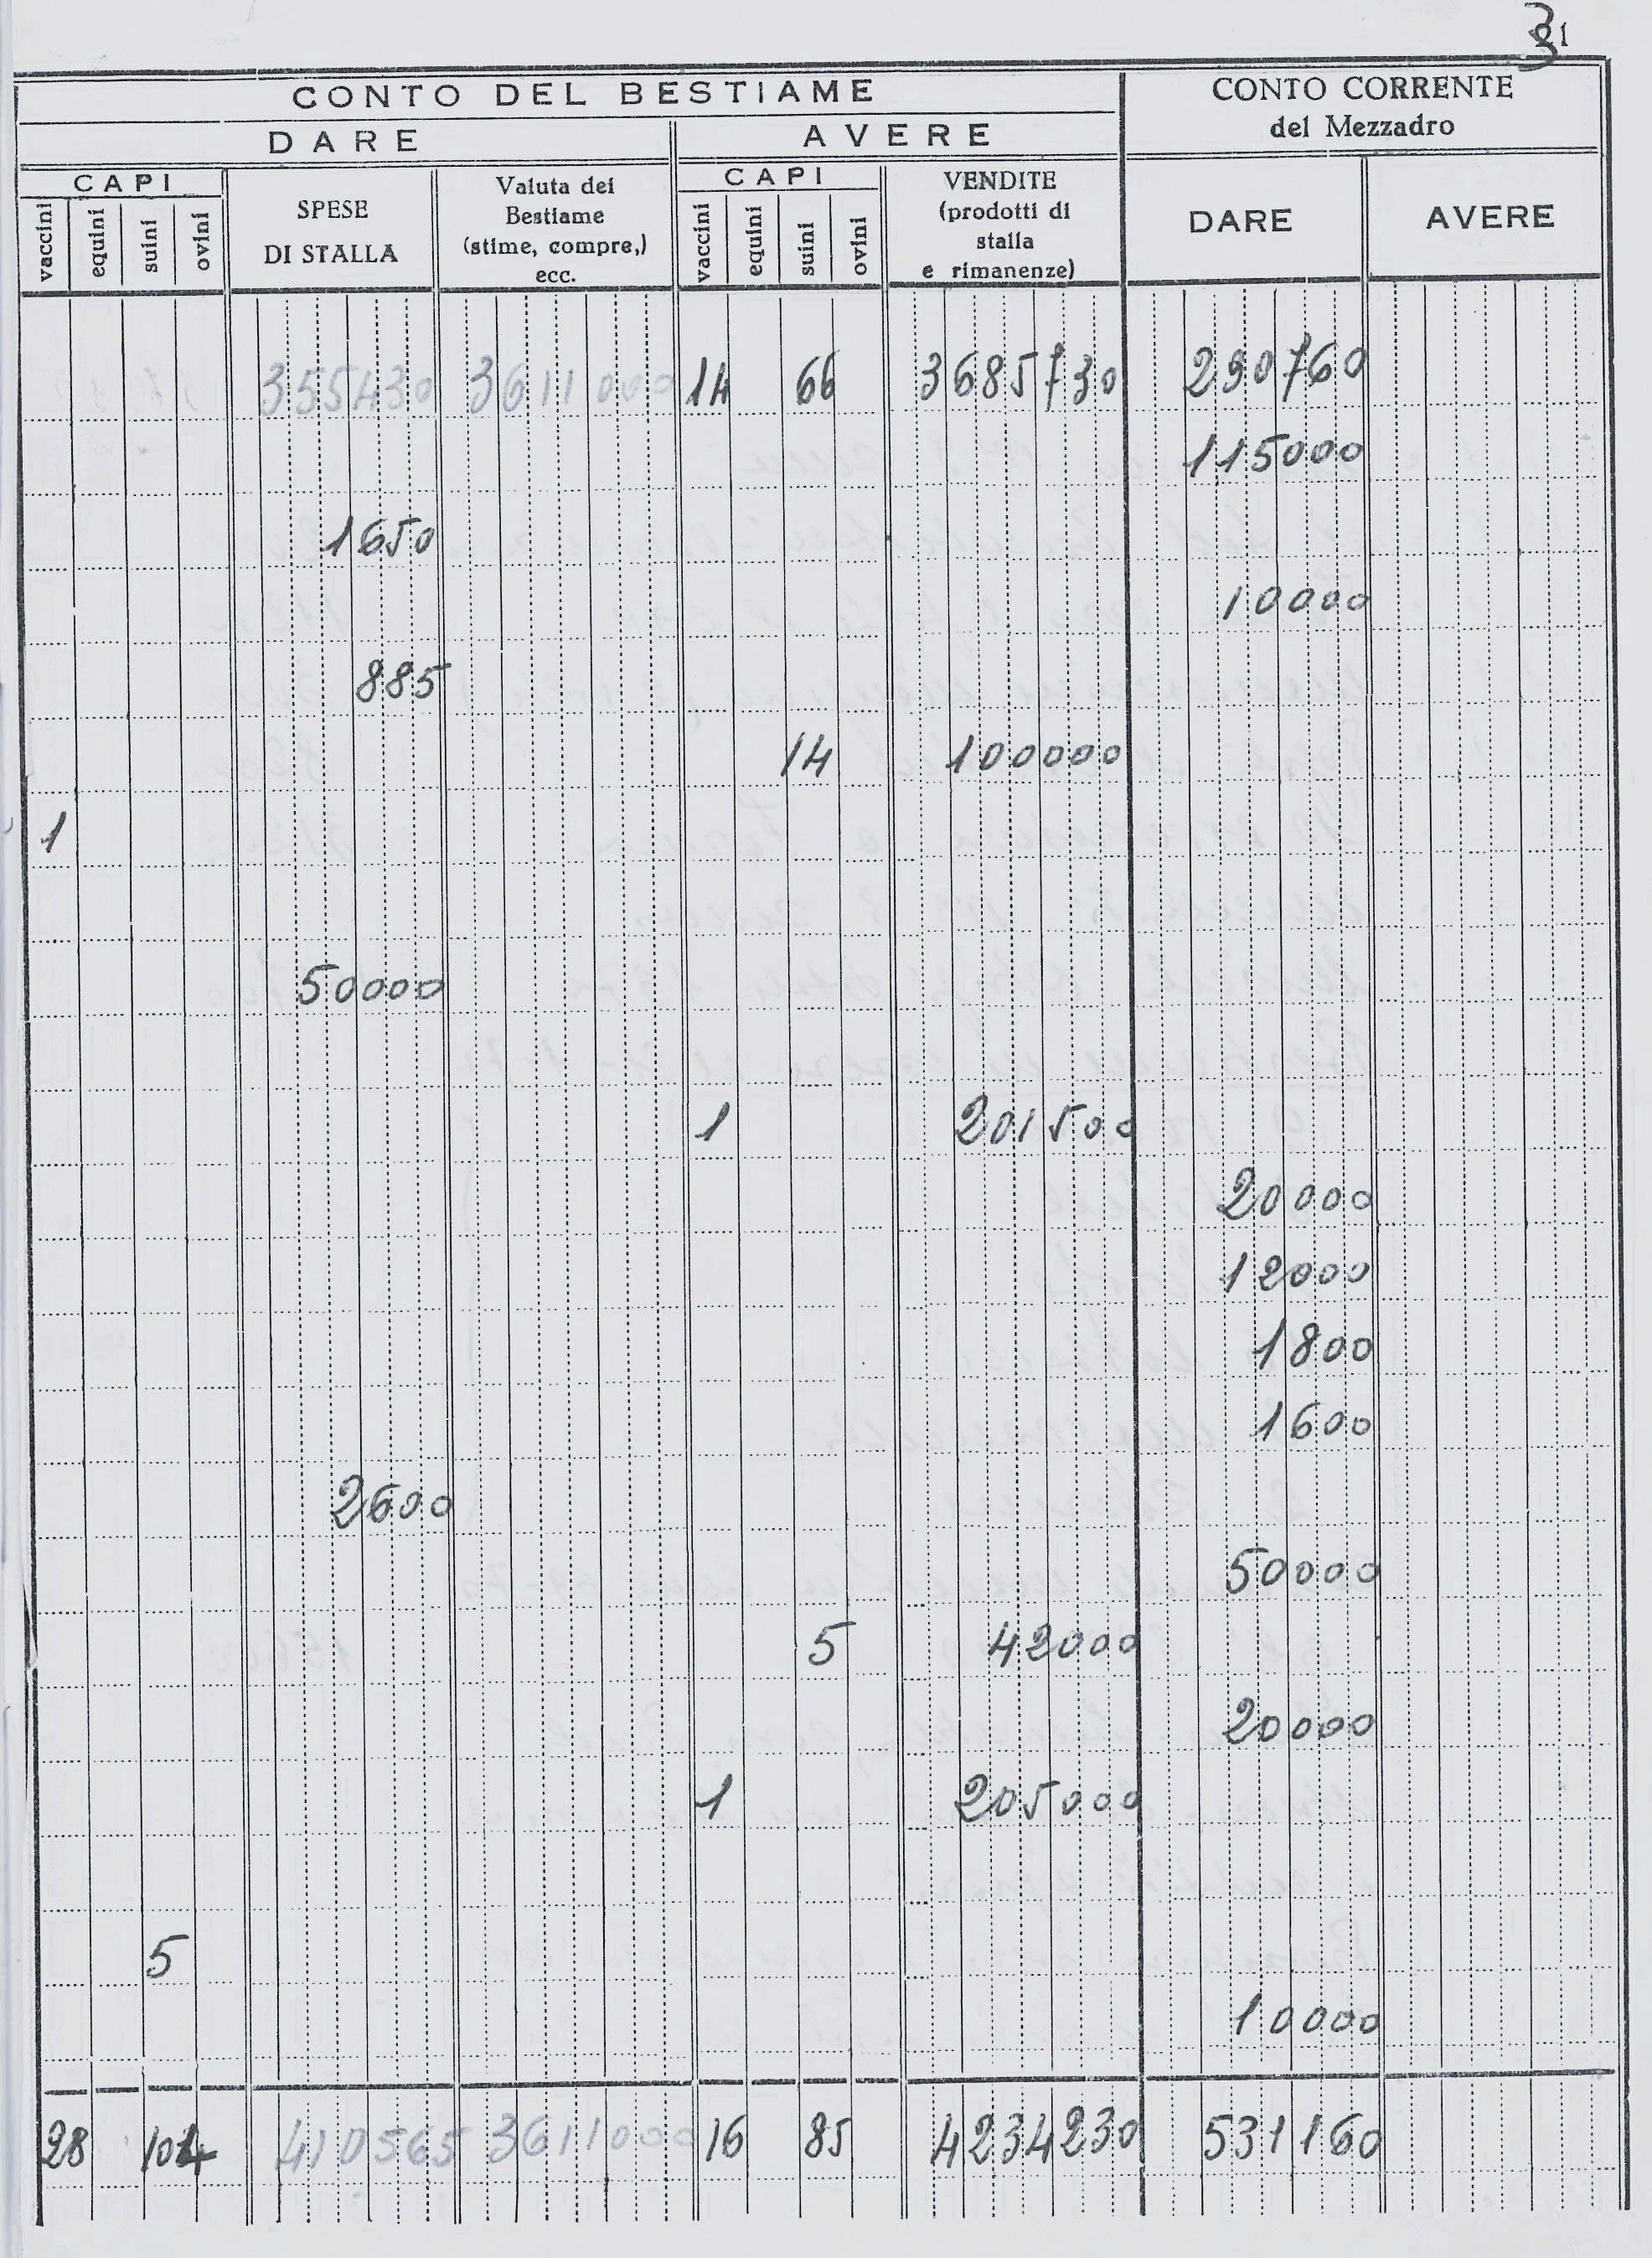 31
CONTO DEL BESTIAME CONTO CORRENTE
del Mezzadro
DARE AVERE
CAPI SPESE DI STALLA Valuta del Bestiame (stime, compre,) ecc. CAPI VENDITE (prodotti di stalla e rimanenze) DARE AVERE
vaccini equini suini ovini vaccini equini suini ovini
355430 3611000 14 66 3685730 290760
115000
1650
10000
885
14 100000
1
50000
1 201500
20000
12000
1800
1600
2600
50000
5 42000
20000
1 205000
5
10000
28 104 410565 3611000 16 85 4234230 531160